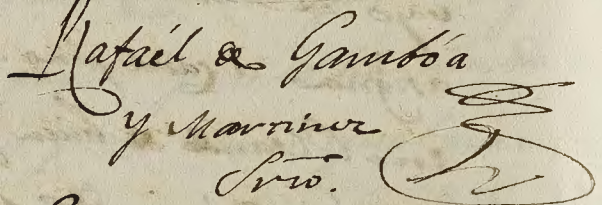 Rafaél de Gambóa
y Martinez
Srio.